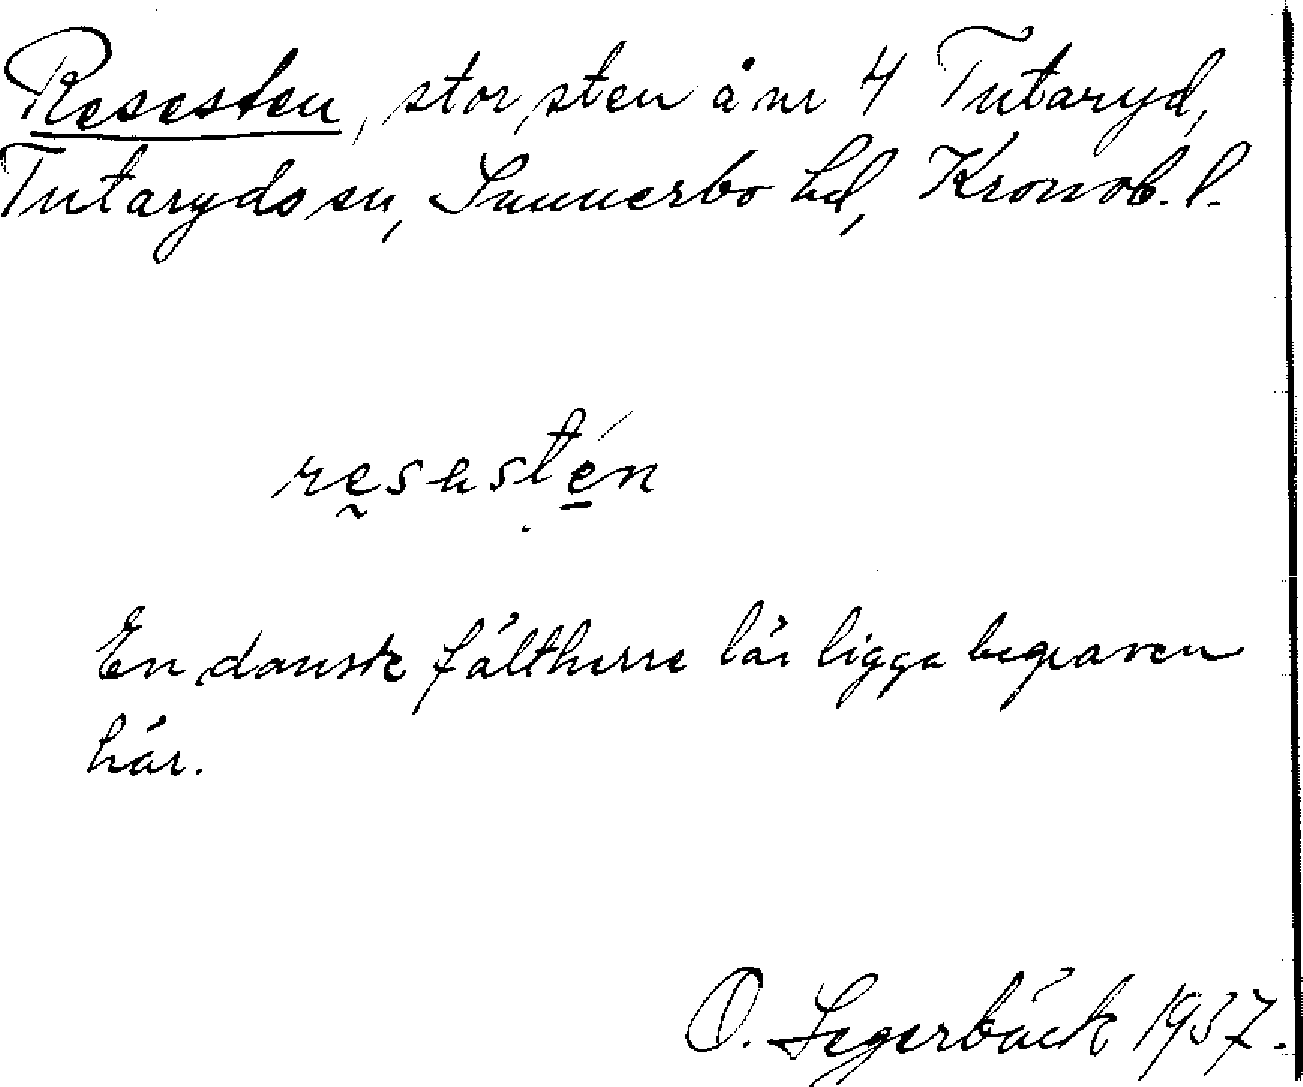 Resesten, stor sten å nr 4 Tutaryd,
Tutaryds sn, Sunnerbo hd, Kronob. l.
resestén
En dansk fältherre lär ligga begraven
här.
O. Segerbäck 1937.